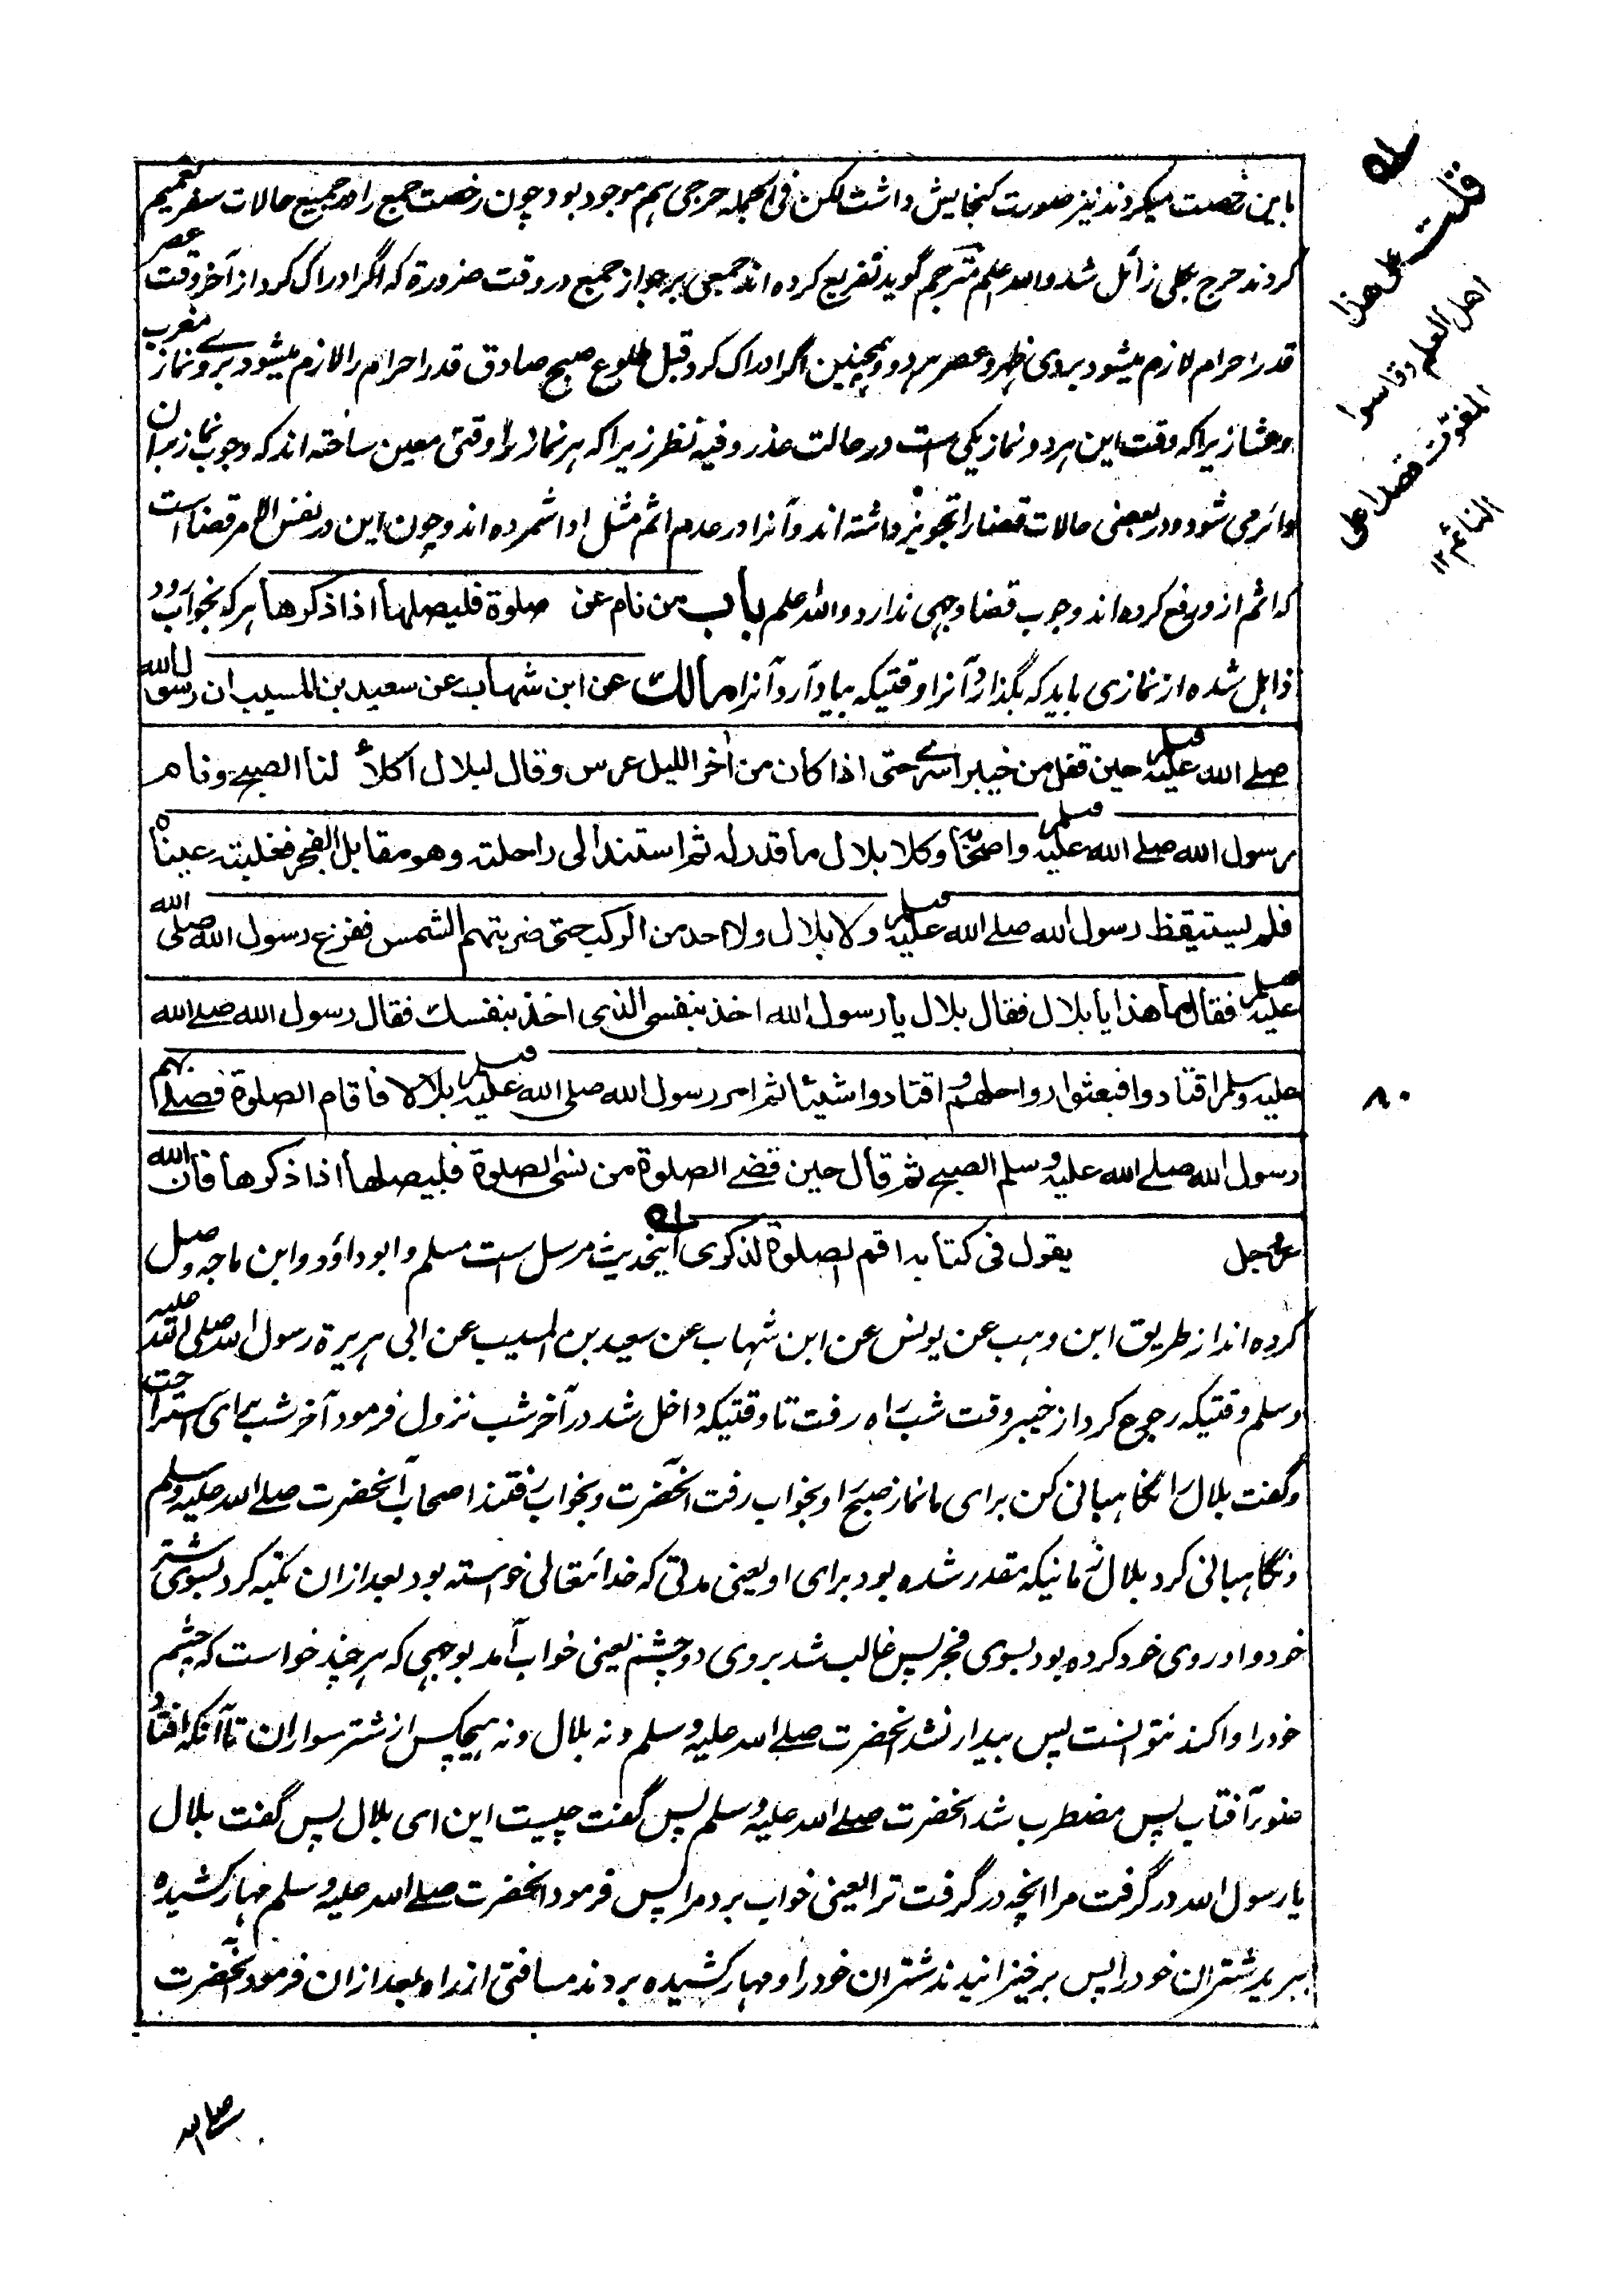 باین رخصت میکردند نیز صورت گنجایش داشت لکن فی الجمله حرجی هم موجود بود چون رخصت جمع را در جمیع حالات سفر تعمیم
کردند حرج بکلی زائل شد والله اعلم مترجم گوید تفریع کرده اند جمعی بر جواز جمع در وقت ضرورة که اگر ادراک کرد از آخر وقت عصر
قدر احرام لازم میشود بروی ظهر و عصر هر دو و همچنین اگر ادراک کرد قبل طلوع صبح صادق قدر احرام را لازم میشود بروے نماز مغرب
و عشا زیرا که وقت این هر دو نماز یکی است در حالت عذر و فیه نظر زیرا که هر نماز را وقتی معین ساخته اند که وجوب نماز بران
دائر می شود و در بعضی حالات قضا را تجویز داشته اند و آنرا در عدم اثم مثل ادا شمرده اند و چون این در نفس الامر قضا است
که اثم از وی رفع کرده اند وجوب قضا وجهی ندارد والله اعلم باب من نام عن صلوة فلیصلها اذا ذکرها هر که بخواب رود
ذاهل شده از نمازی باید که بگذارد آنرا وقتیکه بیاد آرد آنرا مالک عن ابن شهاب عن سعید بن المسیب ان رسول الله
صلے الله علیه وسلم حین قفل من خیبر اسرے حتی اذا کان من اخر اللیل عرس وقال لبلال اکلأ لنا الصبح ونام
رسول الله صلے الله علیه وسلم واصحابه وکلا بلال ما قدر له ثم استند الی راحلته وهو مقابل الفجر فغلبته عیناه
فلم یستیقظ رسول الله صلے الله علیه وسلم ولا بلال ولا احد من الرکب حتی ضربتهم الشمس ففزع رسول الله صلی الله
علیه وسلم فقال ما هذا یا بلال فقال بلال یا رسول الله اخذ بنفسی الذی اخذ بنفسک فقال رسول الله صلے الله
علیه وسلم اقتادوا فبعثوا رواحلهم و اقتادوا شیئا ثم امر رسول الله صلی الله علیه وسلم بلالا فاقام الصلوة فصلے بهم
رسول الله صلے الله علیه وسلم الصبح ثم قال حین قضے الصلوة من نسی الصلوة فلیصلها اذا ذکرها فان الله
عز وجل یقول فی کتابه اقم الصلوة لذکری اینحدیث مرسل است مسلم و ابو داؤد و ابن ماجه وصل
کرده اند از طریق ابن وهب عن یونس عن ابن شهاب عن سعید بن المسیب عن ابی هریرة رسول الله صلی الله علیه
وسلم وقتیکه رجوع کرد از خیبر وقت شب راه رفت تا وقتیکه داخل شد در آخر شب نزول فرمود آخر شب برای استراحت
و گفت بلال را نگاهبانی کن برای ما نماز صبح را و بخواب رفت آنحضرت و بخواب رفتند اصحاب آنحضرت صلے الله علیه وسلم
و نگاهبانی کرد بلال زمانیکه مقدر شده بود برای او یعنی مدتی که خدائتعالی خواسته بود بعد ازان تکیه کرد بسوی شتر
خود و او روی خود کرده بود بسوی فجر پس غالب شد بروی دو چشم یعنی خواب آمد بوجهی که هر چند خواست که چشم
خود را واکند نتوانست پس بیدار نشد آنحضرت صلے الله علیه وسلم و نه بلال و نه هیچکس از شتر سواران تا آنکه افتاد
ضوء آفتاب پس مضطرب شد آنحضرت صلے الله علیه وسلم پس گفت چیست این ای بلال پس گفت بلال
یا رسول الله در گرفت مرا آنچه در گرفت ترا یعنی خواب برد مرا پس فرمود آنحضرت صلے الله علیه وسلم مهار کشیده
ببرید شتران خود را پس برخیزانیدند شتران خود را و مهار کشیده بردند مسافتی از راه بعد ازان فرمود آنحضرت
صلی الله
قلت علی هذا
اهل العلم وقاسوا
المفوت قصدا علی
النائم ۱۲
۸۰